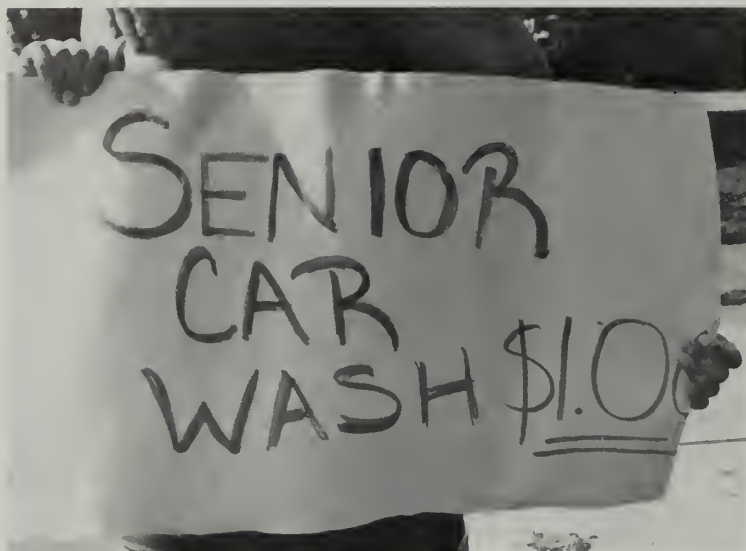 SENIOR
CAR
WASH $1.00